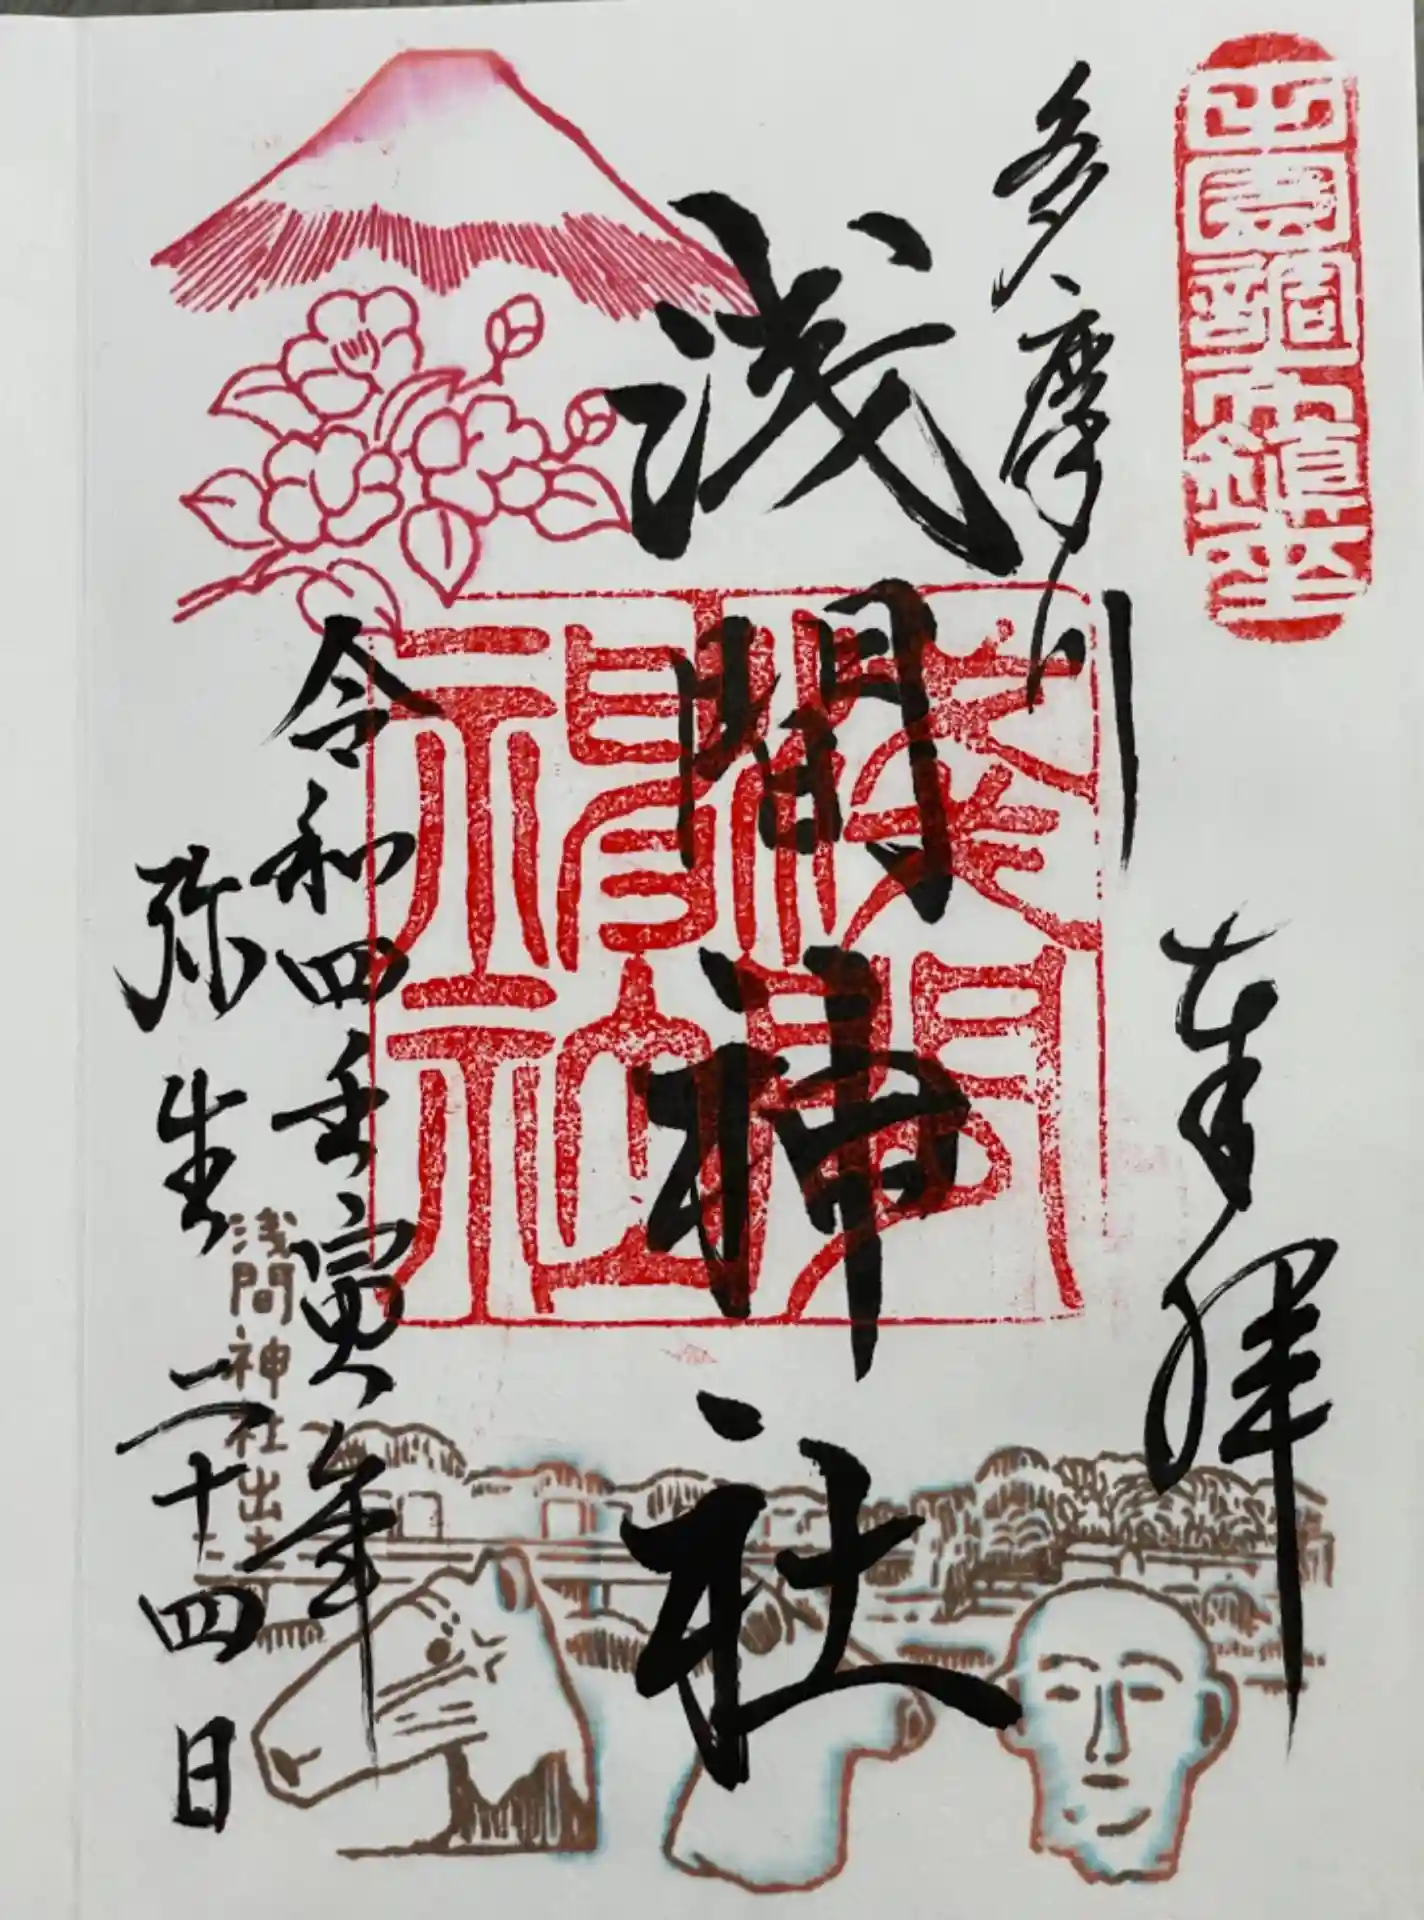 田園調布鎮座
奉拝
多摩川
浅間神社
淺間神社
令和四壬寅年
弥生二十四日
浅間神社出土